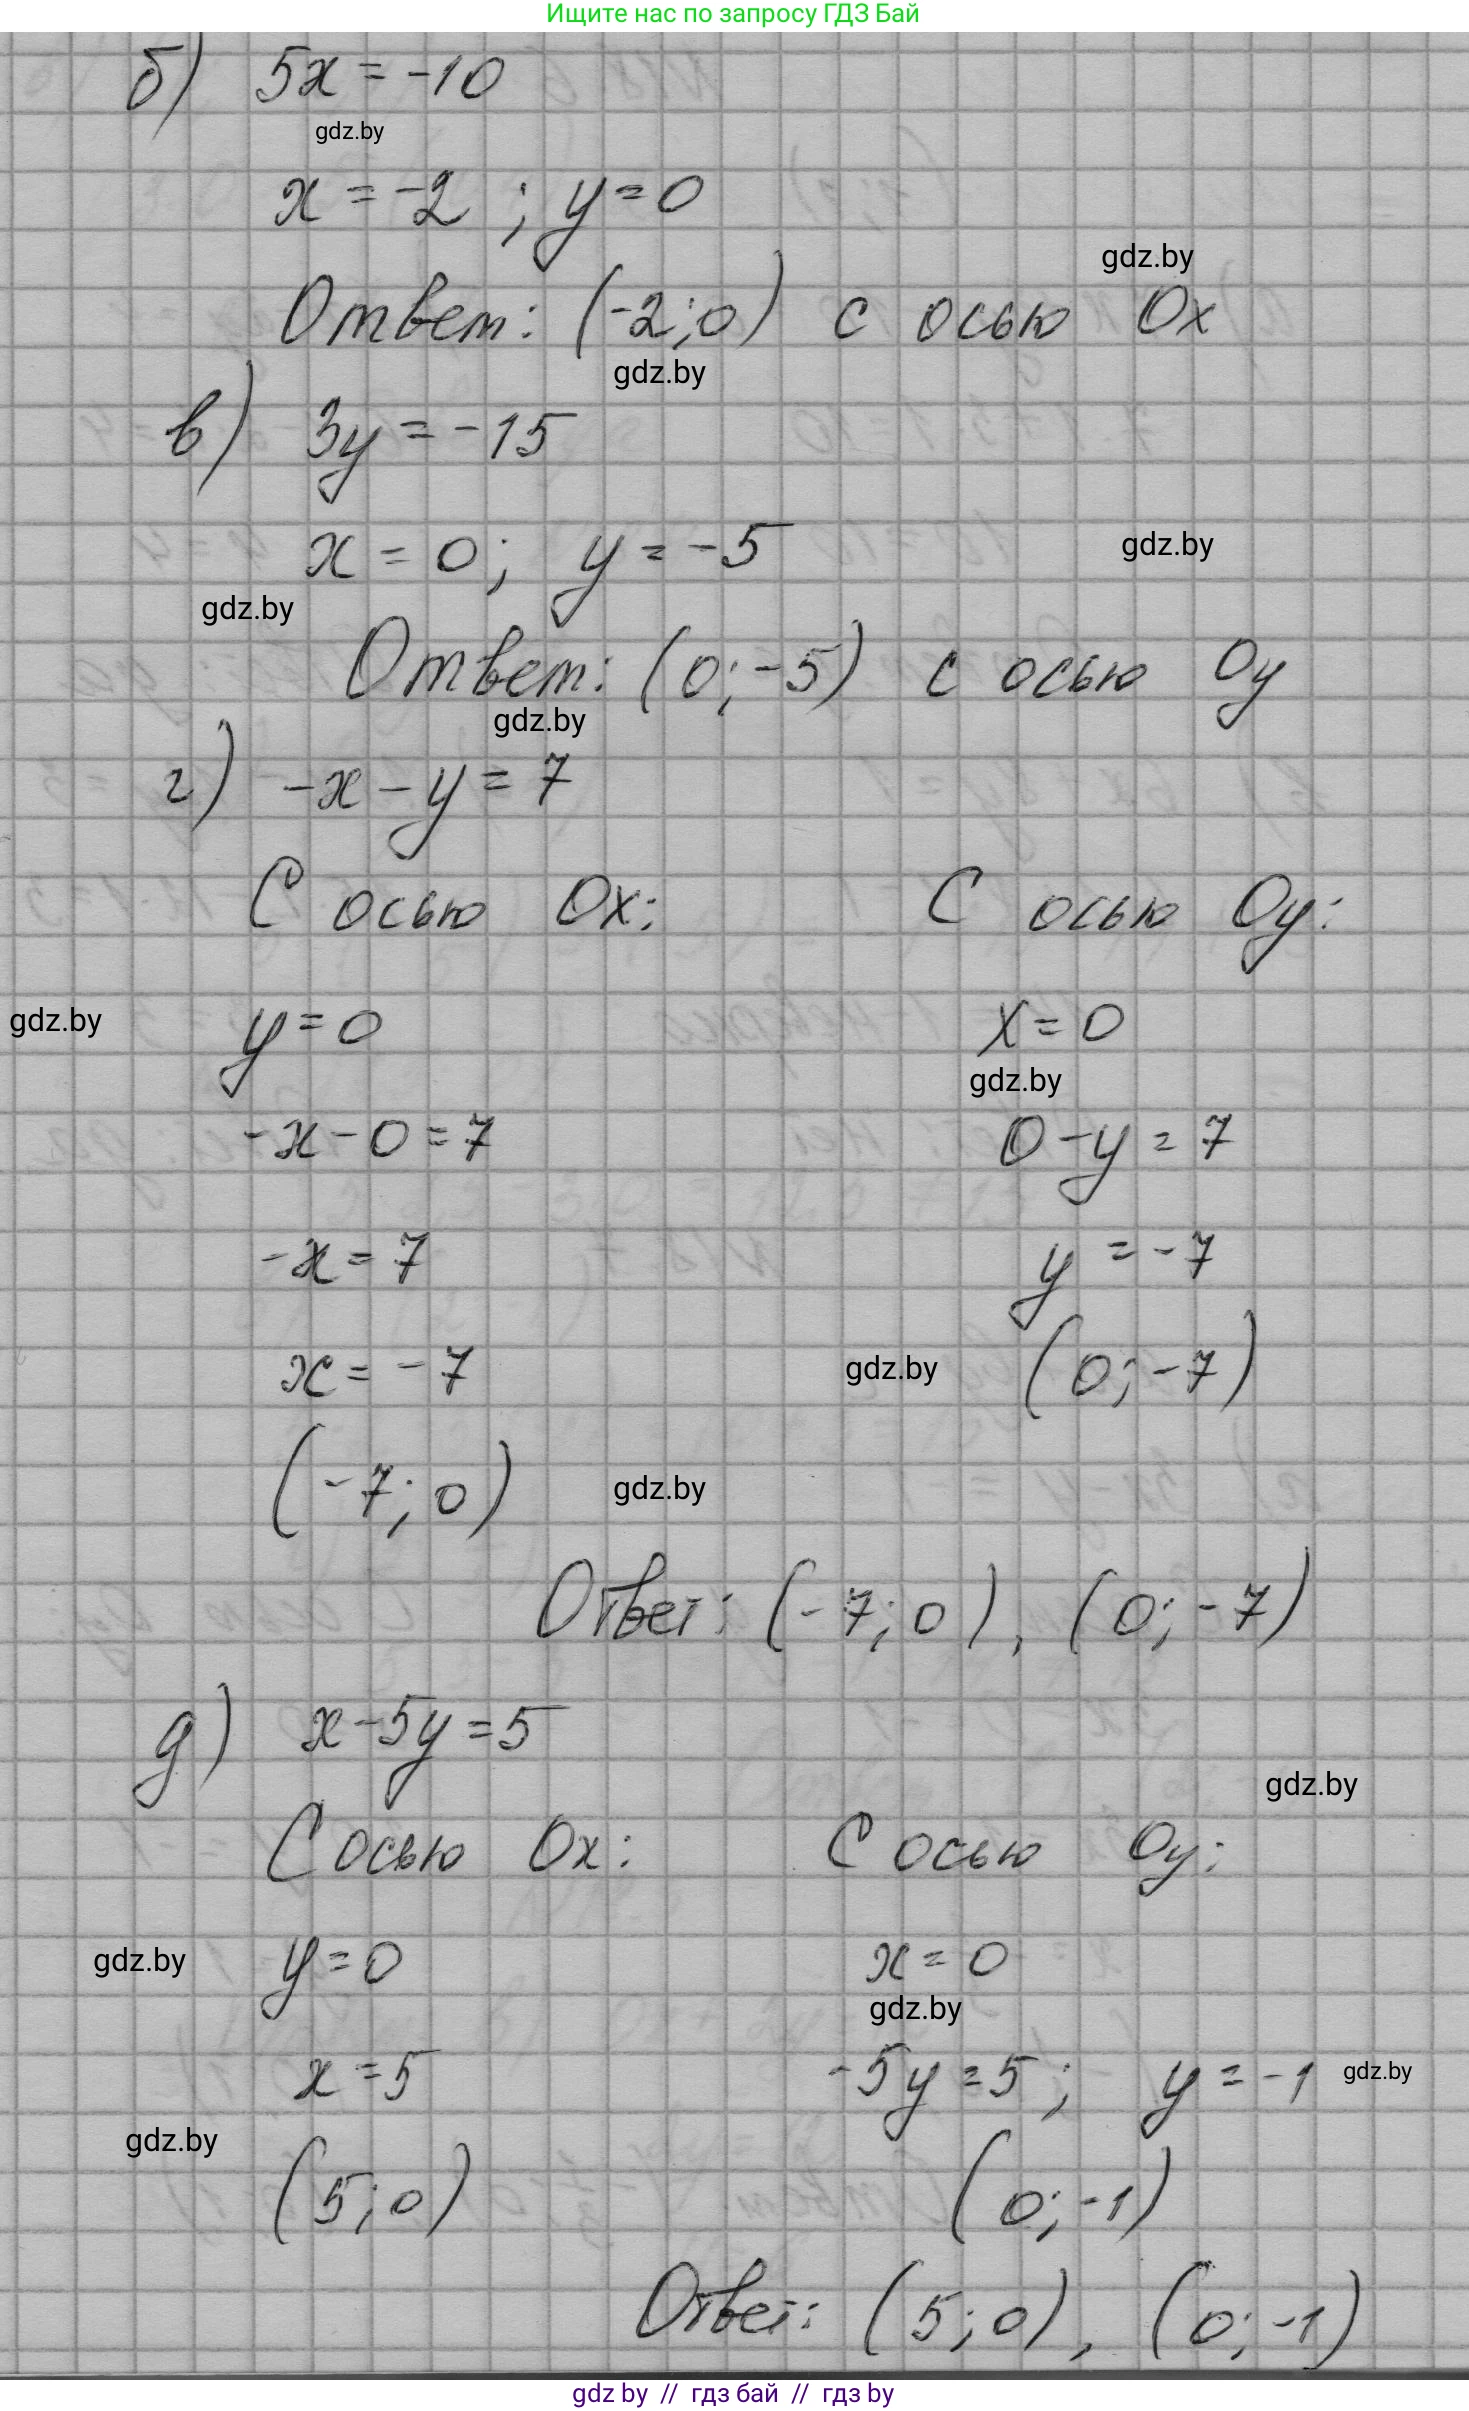 Ищите нас по запросу ГДЗ Бай
б) 5x = -10
gdz.by
x = -2 ; y = 0
gdz.by
Ответ: (-2; 0) с осью Ox
gdz.by
в) 3y = -15
x = 0; y = -5
gdz.by
gdz.by
Ответ: (0; -5) с осью Oy
gdz.by
г) -x - y = 7
С осью Ox: С осью Oy:
gdz.by y = 0 x = 0
gdz.by
-x - 0 = 7 0 - y = 7
-x = 7 y = -7
x = -7 gdz.by (0; -7)
(-7; 0) gdz.by
Ответ: (-7; 0), (0; -7)
д) x - 5y = 5
gdz.by
С осью Ox: С осью Oy:
gdz.by y = 0 x = 0
gdz.by
x = 5 -5y = 5; y = -1 gdz.by
gdz.by
(5; 0) (0; -1)
Ответ: (5; 0), (0; -1)
gdz by // гдз бай // гдз by